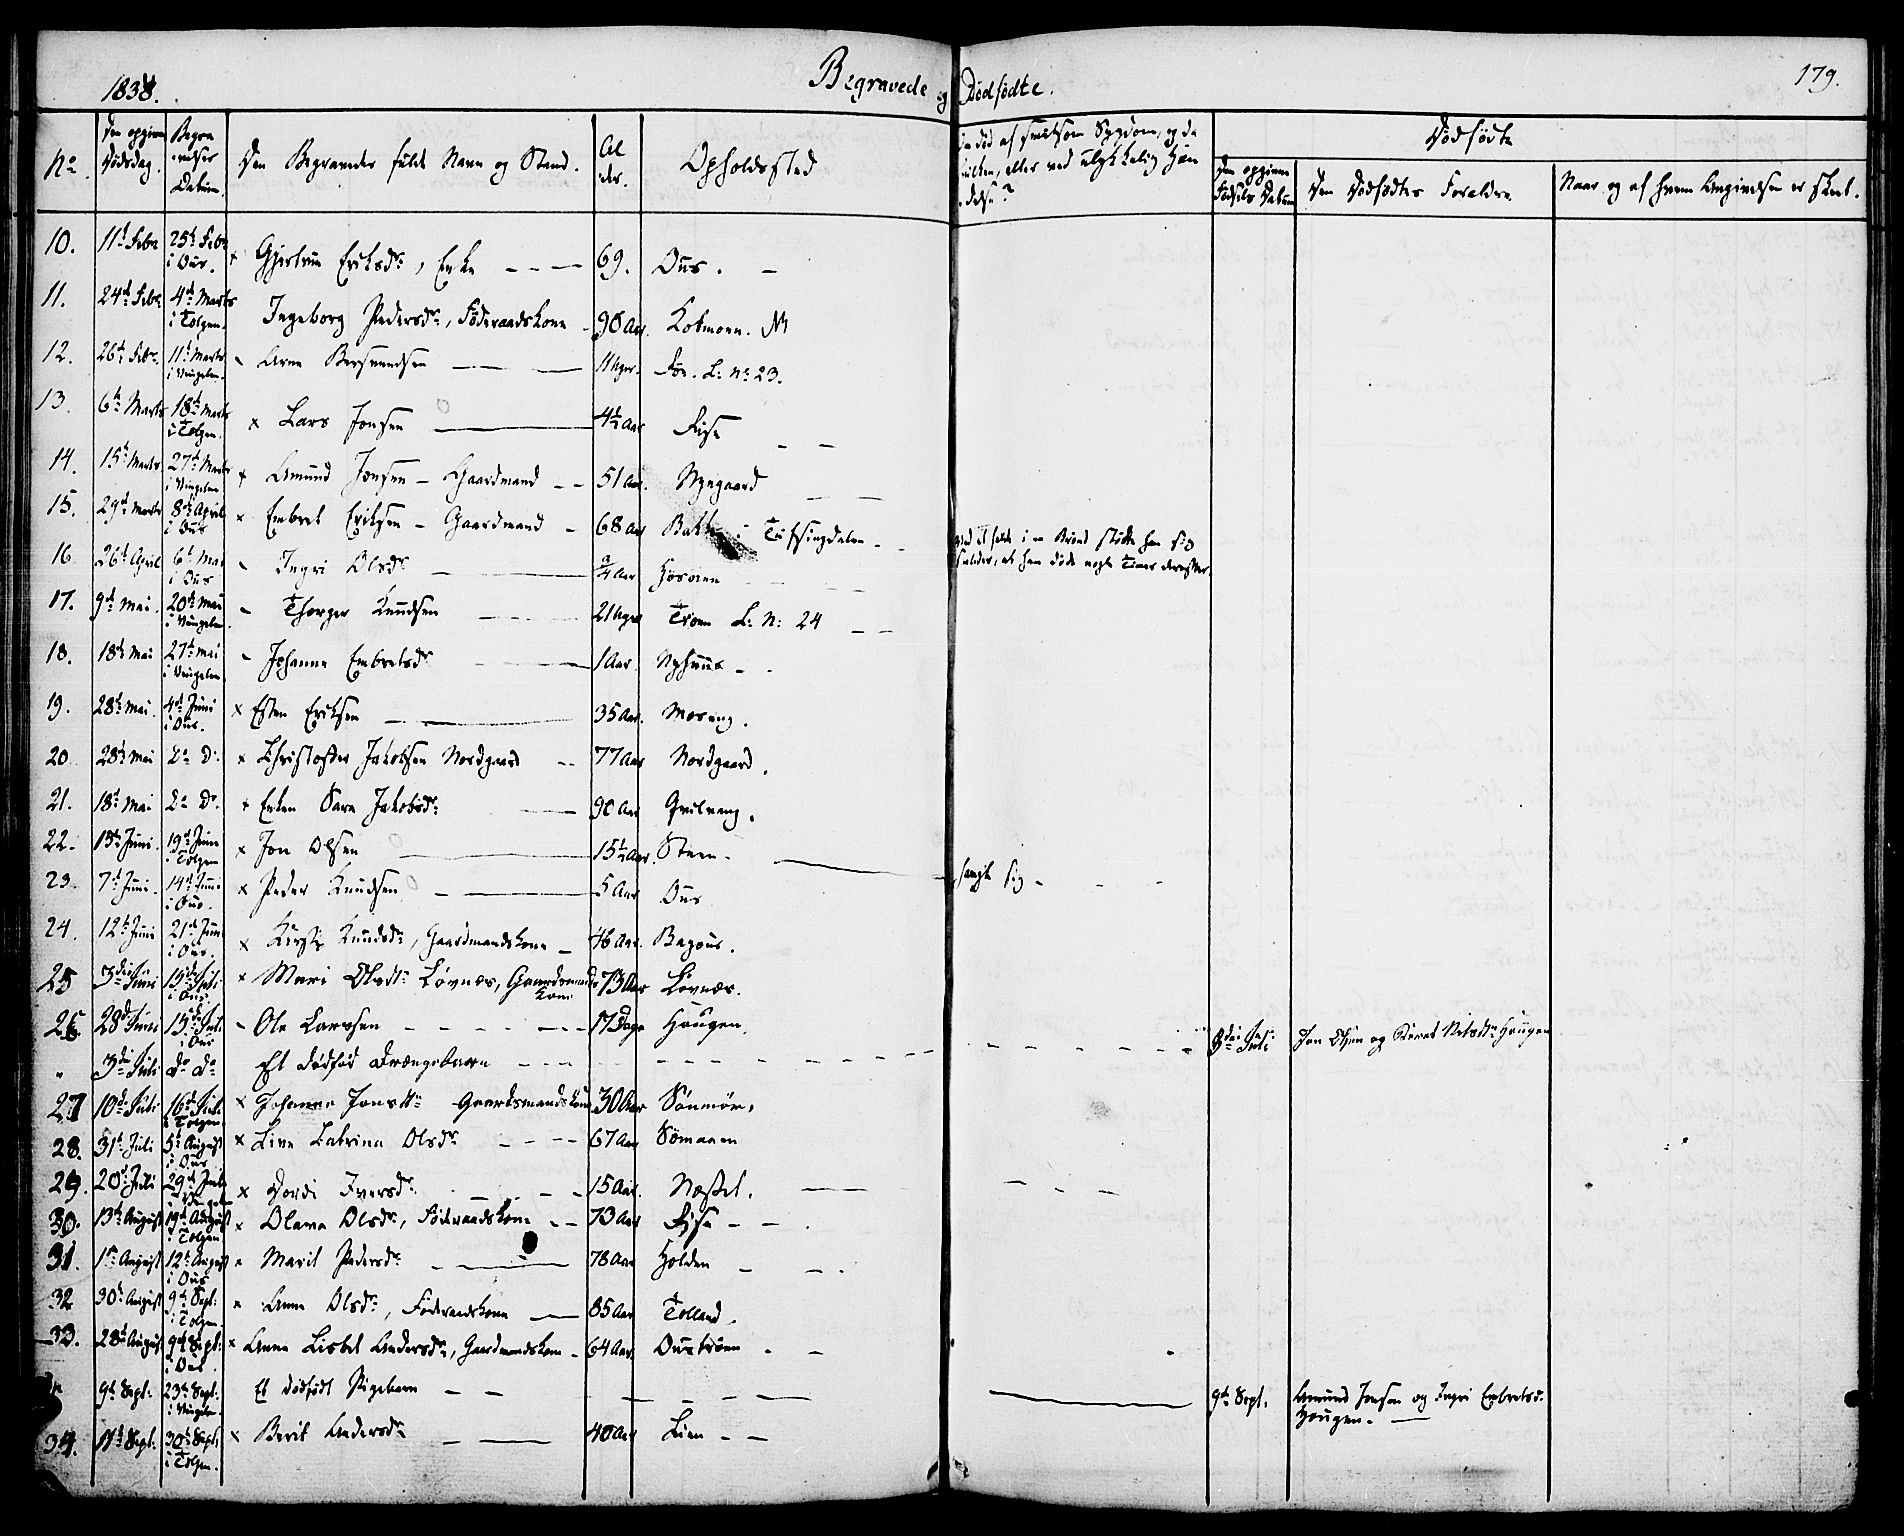 1838.
Begravede og Dødfødte.
179.
No.
Den opgivne Dødsdag.
Begravelses Datum.
Den Begravedes fulde Navn og Stand.
Alder.
Opholdssted
Om død af smitsom Sygdom, og da hvilken, eller ved ulykkelig Hændelse?
Dødfødte
Den opgivne Fødsels Datum
Den Dødfødtes Forældre
Naar og af hvem Angivelsen er skeet.
10. 11te Febr 25de Febr i Ous. × Gjertrue Eriksdr, Enke 69. Ous.
11. 24de Febr 4de Marts i Tolgen. Ingeborg Pedersdr, Föderaadskone 90 Aar. Kobmoen. N
12. 26de Febr. 11te Marts i Vingelen. Arne Bersvendsen 11 Uger. L: No 23.
13. 6te Marts 18de Marts i Tolgen. × Lars Jonsen 4½ Aar Rise
14. 15de Marts 27de Marts i Vingelen × Amund Jonsen - Gaardmand 51 Aar. Nygaard
15. 29de Marts 8de April i Ous × Embret Eriksen - Gaardmand 68 Aar Bakken i Tufsingdalen. ved at falde i en Brönd stödte han sig saaledes, at han döde nogle Timer derefter.
16 26de April 6te Mai i Ous Ingri Olsdr ¾ Aar Hosøien
17. 9de Mai. 20de Mai i Vingelen. Thorger Knudsen 21 Uger Troen L: N: 24
18. 18de Mai 27de Mai i Vingelen. Johanna Embretsdr 1 Aar. Nyhuus
19. 28de Mai. 4de Juni i Ous. × Esten Eriksen 35 Aar. Moseng.
20 28de Mai Do Do × Christopher Jakobsen Nordgaard 77 Aar Nordgaard.
21. 18de Mai Do Do. × Enken Sara Jakobsdr 90 Aar
22. 15de Juni. 19de Juni i Tolgen × Jon Olsen 15½ Aar. Steen. hængte sig
23. 7de Juni. 14de Juni i Ous. × Peder Knudsen 5 Aar Ous
24. 12te Juni 21de Juni i Ous. × Kirsti Knudsdr, Gaardmandskone 46 Aar. Bagous.
25 3die Juni 15de Juli i Ous. × Mari Olsdtr Løvnæs, Gaardmandskone 73 Aar Løvnæs.
26 28de Juni 15de Juli i Ous Ole Larssen 17 Dage Haugen.
" 3die Juli do do Et dødfød Drængebarn 3die Juli Jon Olsen og Beret Nilsdtr Haugen
27 10de Juli 16de Juli i Tolgen × Johanna Jonsdtr Gaardsmandskone 30 Aar Sönmör.
28. 31te Juli 5te August i Ous × Live Catrina Olsdr 67 Aar Sömaaen
29. 20de Juli 29de Juli × Dordi Iversdr. 15 Aar. Næsset.
30. 13de August 19de August i Tolgen × Olava Olsdr, Föderaadskone 73 Aar Rise
31. 1ste August 12te August i Ous × Marit Pedersdr 78 Aar Holden
32 30te August 9de Sept: i Tolgen. × Anne Olsdr, Föderaadskone 85 Aar Tolland.
33. 28de August 9de Sept: i Ous × Anne Lisbet Andersdr, Gaardmandskone 64 Aar. Oustrøen
9de Sept: 23de Sept: i Vingelen. Et dödfödt Pigebarn 9de Sept. Amund Jonsen og Ingri Embretsdr Haugen.
34. 17de Sept: 30te Sept: i Tolgen. × Berit Andersdr 40 Aar Lien